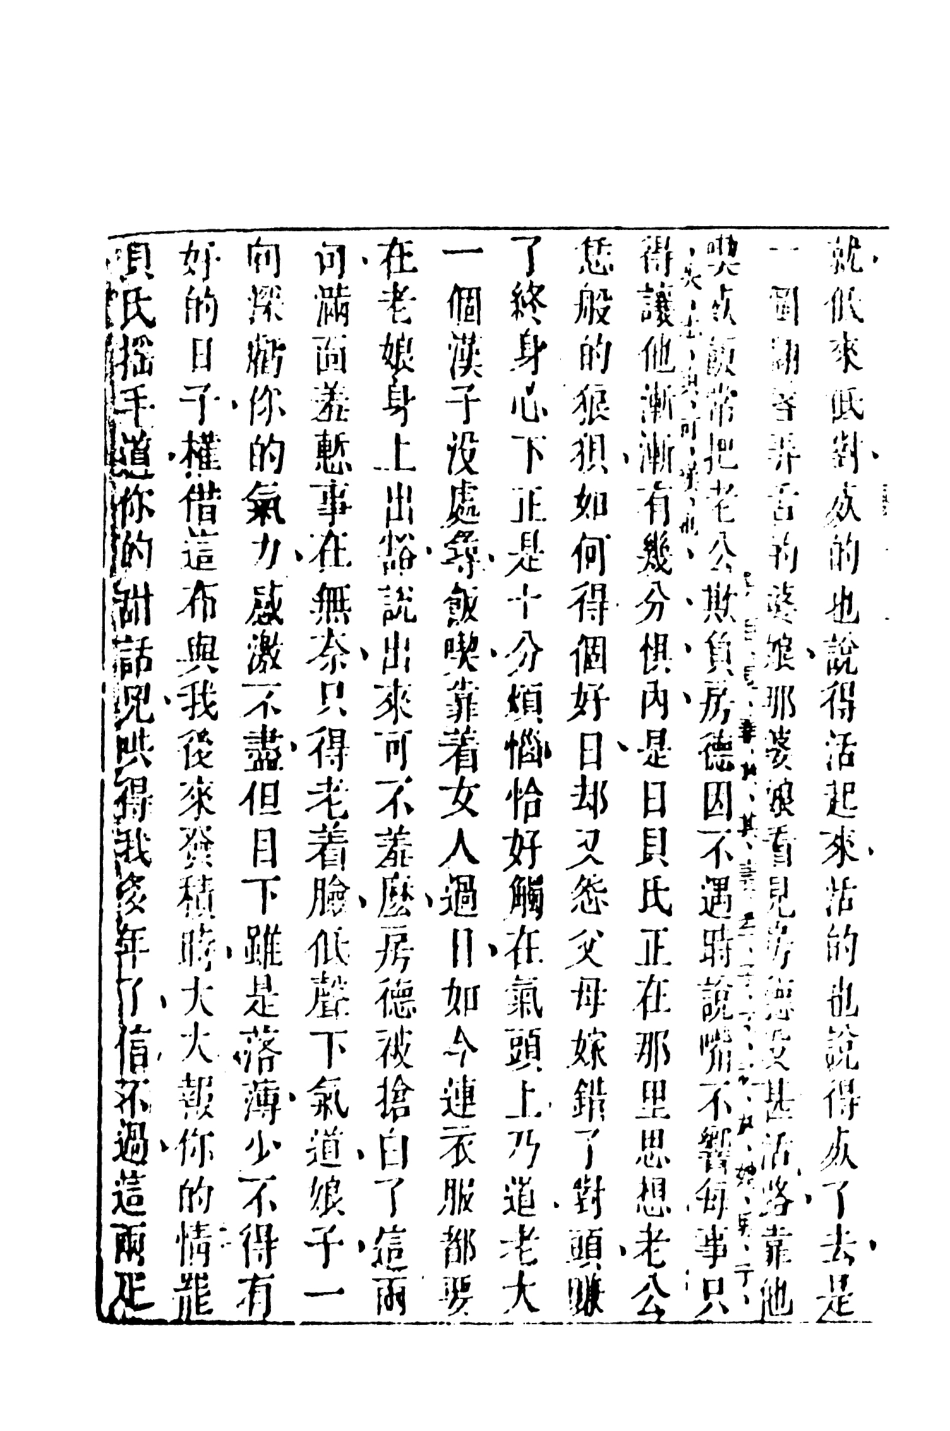 就低來低對死的也說得活起來活的也說得死了去是
一個翻唇弄舌的婆娘那婆娘看見房德沒甚活路靠他
喫死飯常把老公欺負房德因不遇時說嘴不響每事只
得讓他漸漸有幾分懼內是日貝氏正在那里思想老公
恁般的狼狽如何得個好日却又怨父母嫁錯了對頭賺
了終身心下正是十分煩惱恰好觸在氣頭上乃道老大
一個漢子没處尋飯喫靠着女人過日如今連衣服都要
在老娘身上出豁說出來可不羞麽房德被搶白了這兩
句滿面羞慙事在無奈只得老着臉低聲下氣道娘子一
向深虧你的氣力感激不盡但目下雖是落薄少不得有
好的日子權借這布與我後來發積時大大報你的情罷
貝氏摇手道你的甜話兒哄得我多年了信不過這兩疋